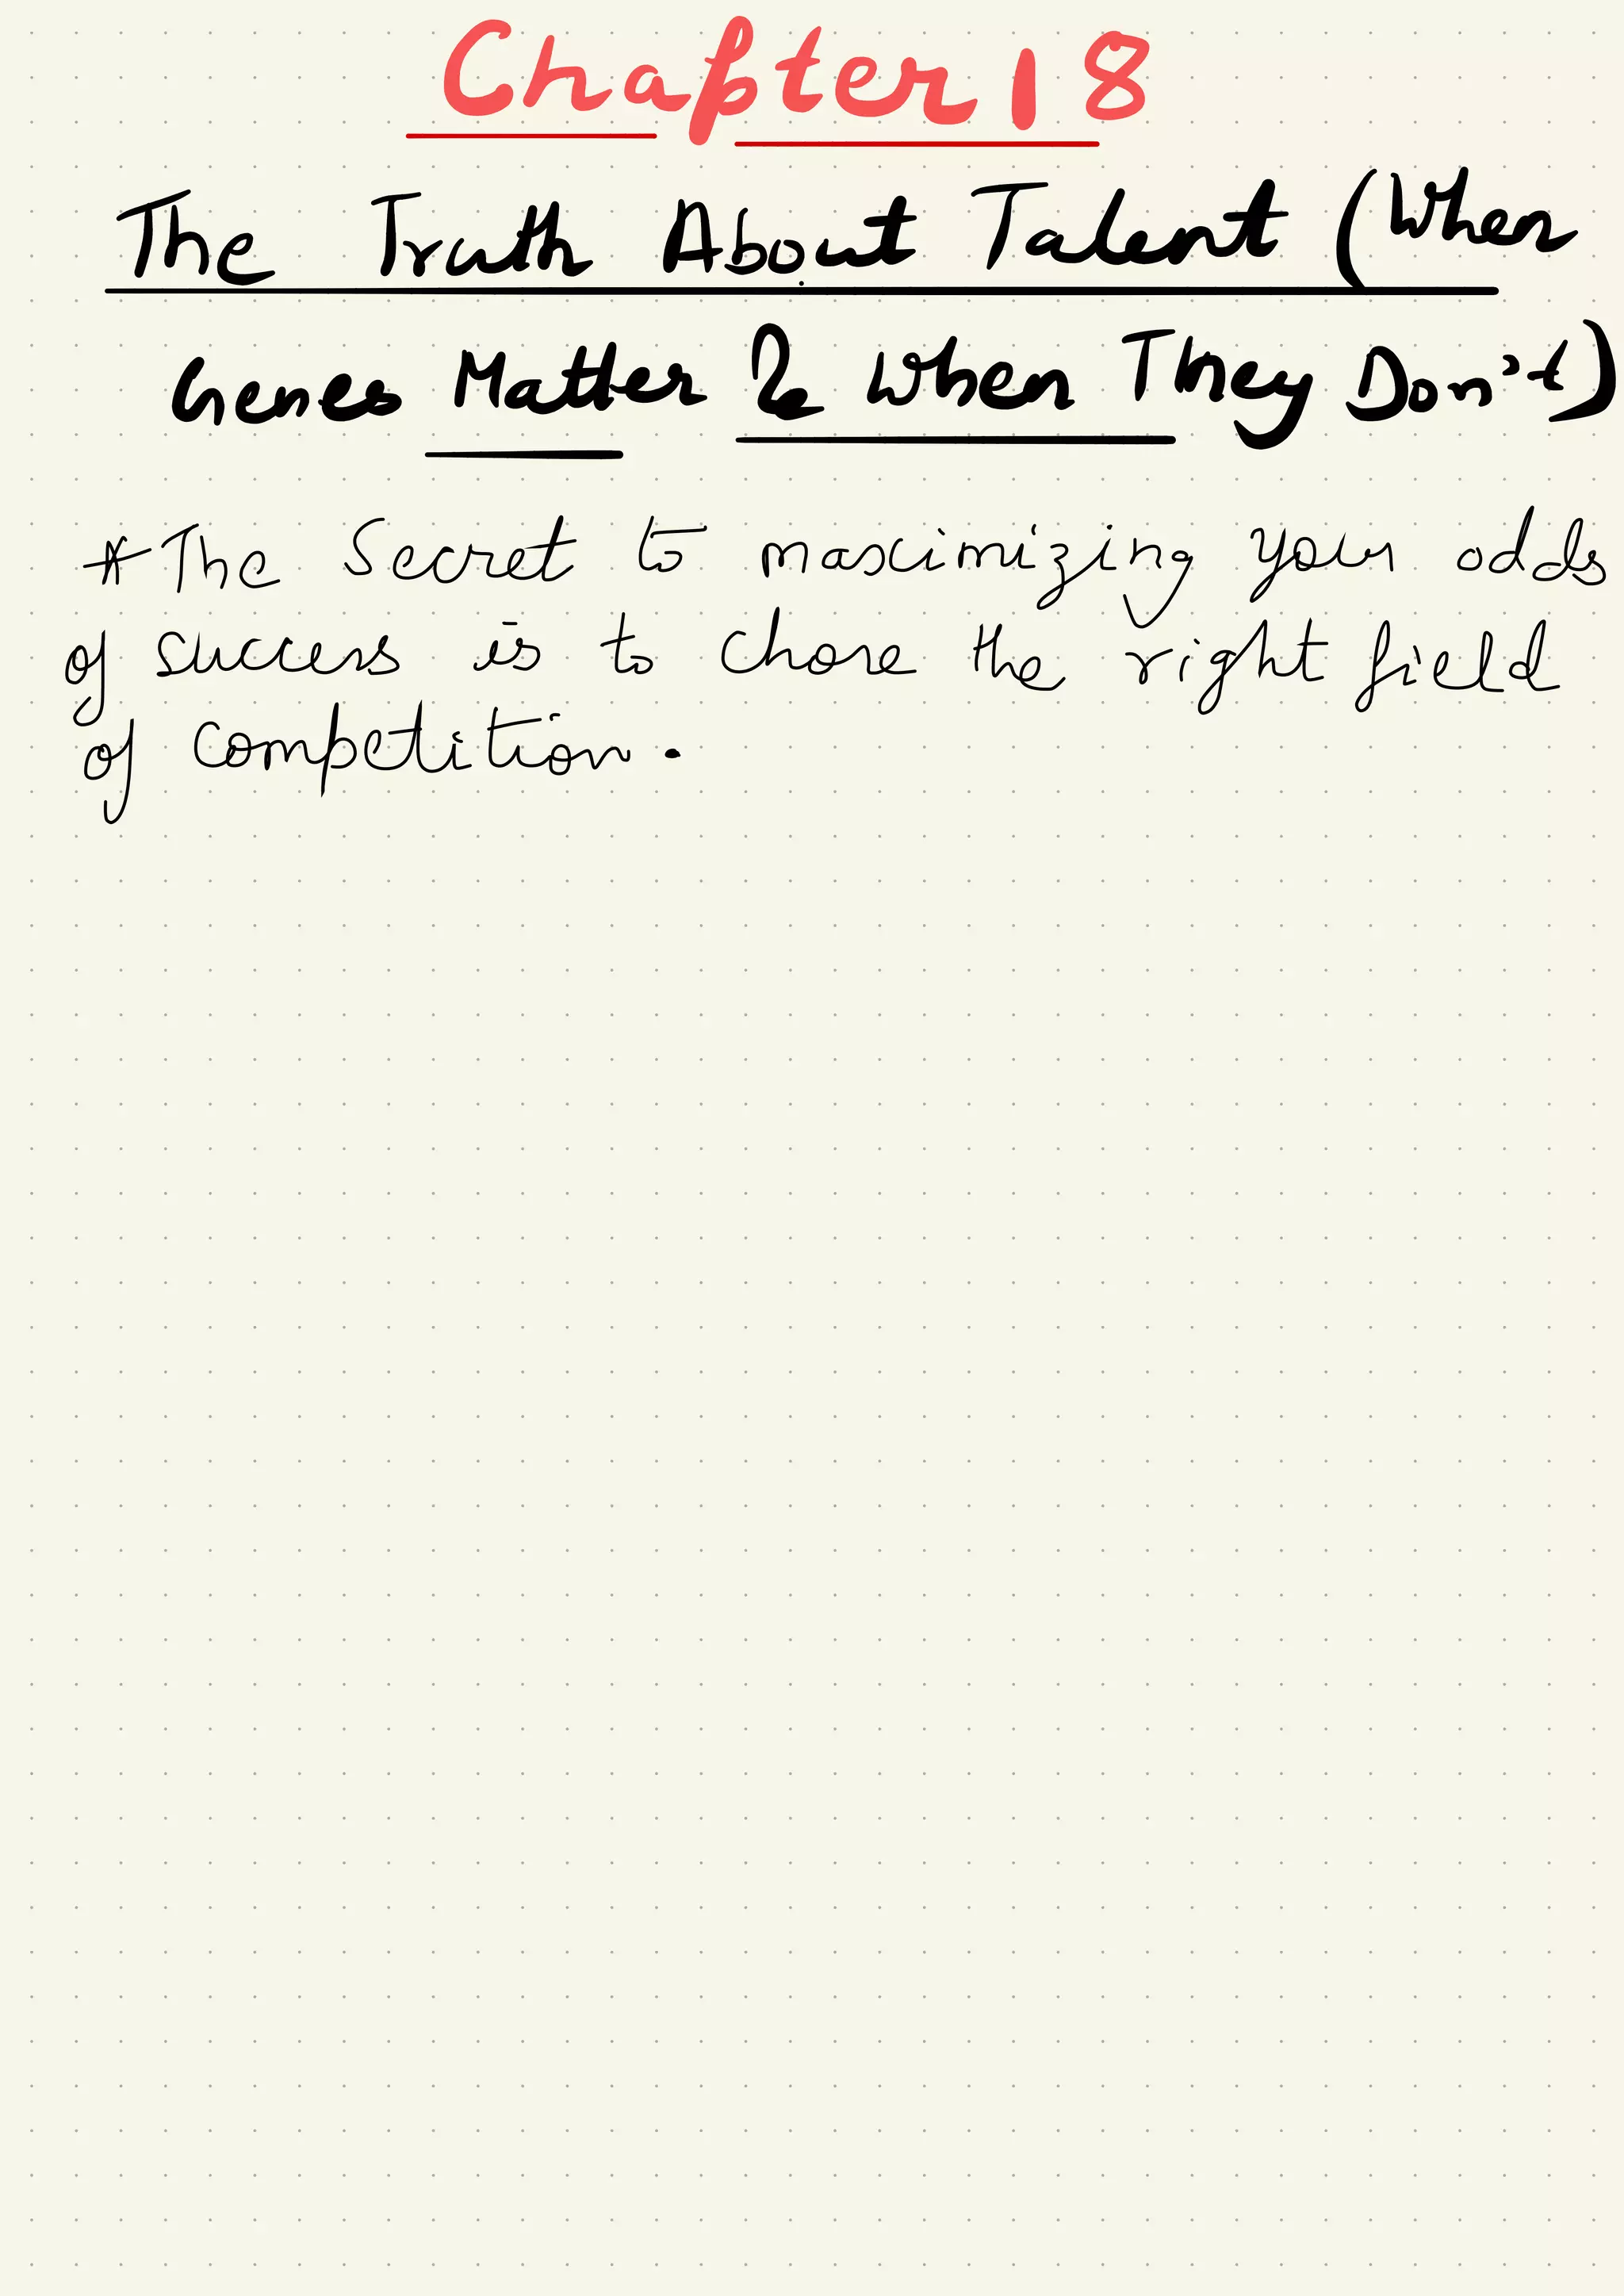 Chapter 18
The Truth About Talent (When
Genes Matter & When They Don't)
*The Secret to maximizing your odds
of success is to chose the right field
of competition.